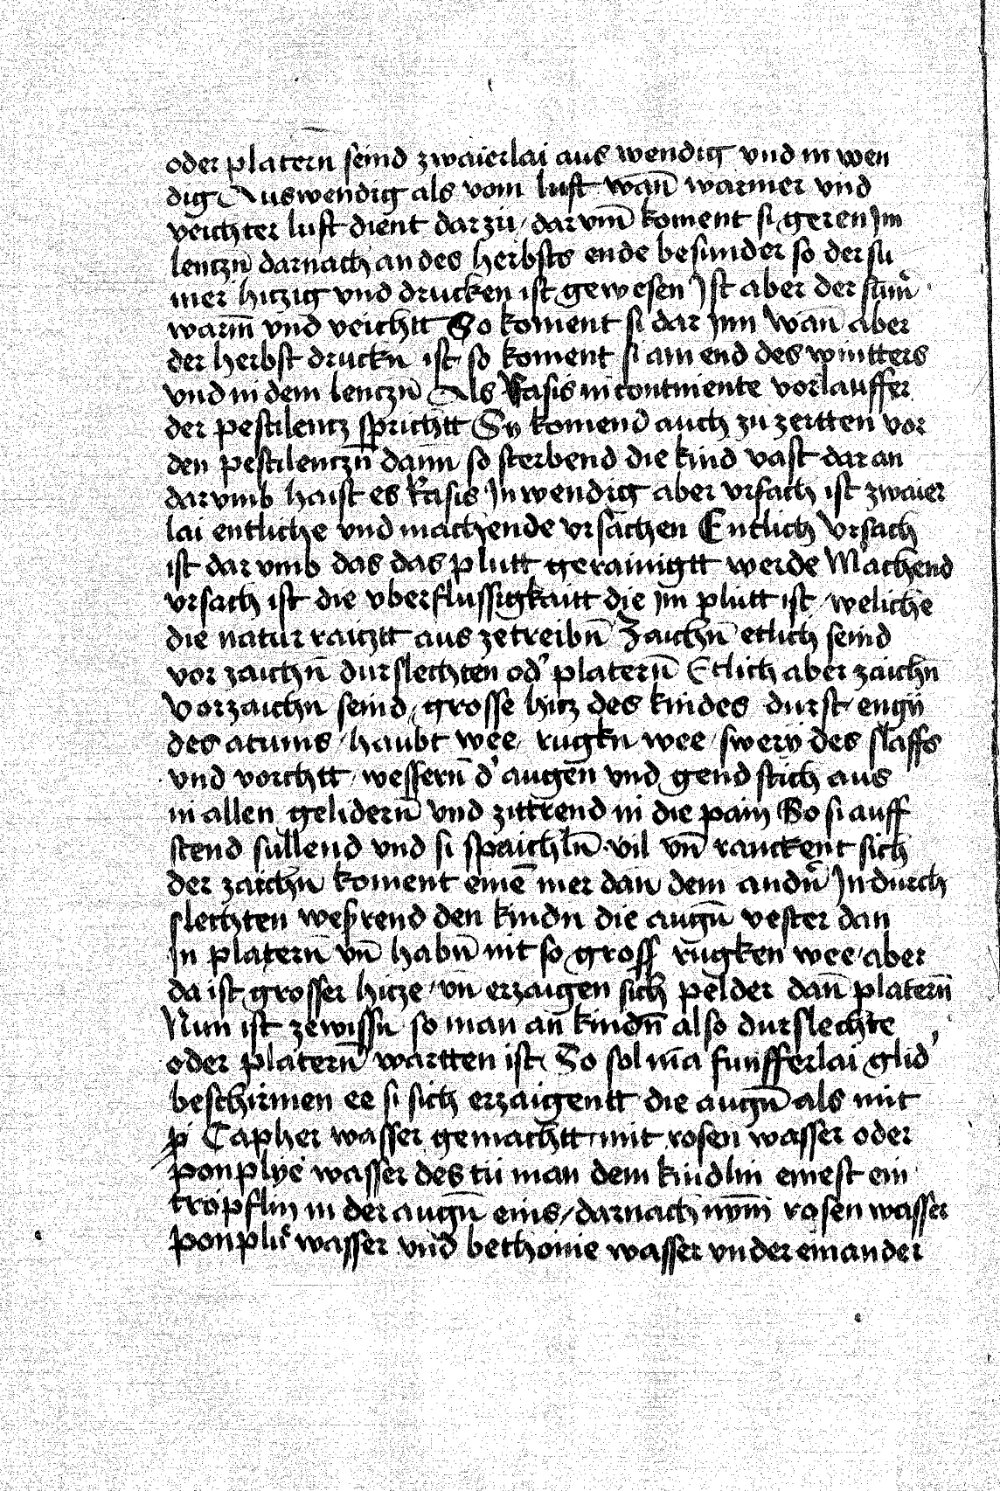 oder platern seind zwaierlai aus wendig vnd in wen
dig Auswendig als vom luft wan̄ warmer vnd
veichter luft dient dar zu / dar vm̄ koment si geren Jm
lenczn̄ darnach an des herbsts ende besunder so der su
mer hiczig vnd drucken ist gewesen Jst aber der sum̄
warm vnd veichtt So koment si dar Jnn wan̄ aber
der herbst druckn̄ ist so koment si am end des wintters
vnd in dem lenczn̄ Als Rasis in continente vorlauffer
der pestilentz sprichtt Sy komend auch zu zertten vor
den pestilenczn̄ dann so sterbend die kind vast dar an
dar vmb haist es Rasis Jn wendig aber vrsach ist zwaier
lai entliche vnd machende vrsachen Entlich vrsach
ist dar vmb das das plutt gerainigtt werde Machend
vrsach ist die vberflussigkaitt die jm plutt ist / weliche
die natur raicztt aus zetreibn̄ Zaichn̄ etlich seind
vor zaichn̄ durslechten od' platern̄ Etlich aber zaichn̄
Vorzaichn̄ seind / grosse hicz des kindes durst / engij
des atums / haubt wee / rugkn wee / swerij des slaffs
vnd vorchtt / wessern̄ d' augen vnd gend stich aus
in allen gelidern̄ vnd zittrend in die pain So si auff
stend sullend vnd si spaichln̄ vil vn̄ ranckent sich
der zaichn̄ koment eine mer dan dem andn̄ Jn durch
slechten wesrend den kindn die augn̄ vester dan
Jn platern̄ vn̄ habn̄ nit so gross rugken wee / aber
da ist grosser hicze / vn̄ erzaigen sich pelder dan̄ platern̄
Nun ist zewissn̄ so man an kindn̄ also durslechte
oder platern̄ wartten ist So sol ma funfferlai glid'
beschirmen ee si sich erzaigentt die augn̄ als mit
Capher wasser gemachtt / mit rosen wasser oder
ponplye wasser des tu man dem kindlin einest ein
tropflin in der augn̄ eins / darnach nym̄ rosen wasser
ponplir wasser vnd bethonie wasser vnder einander